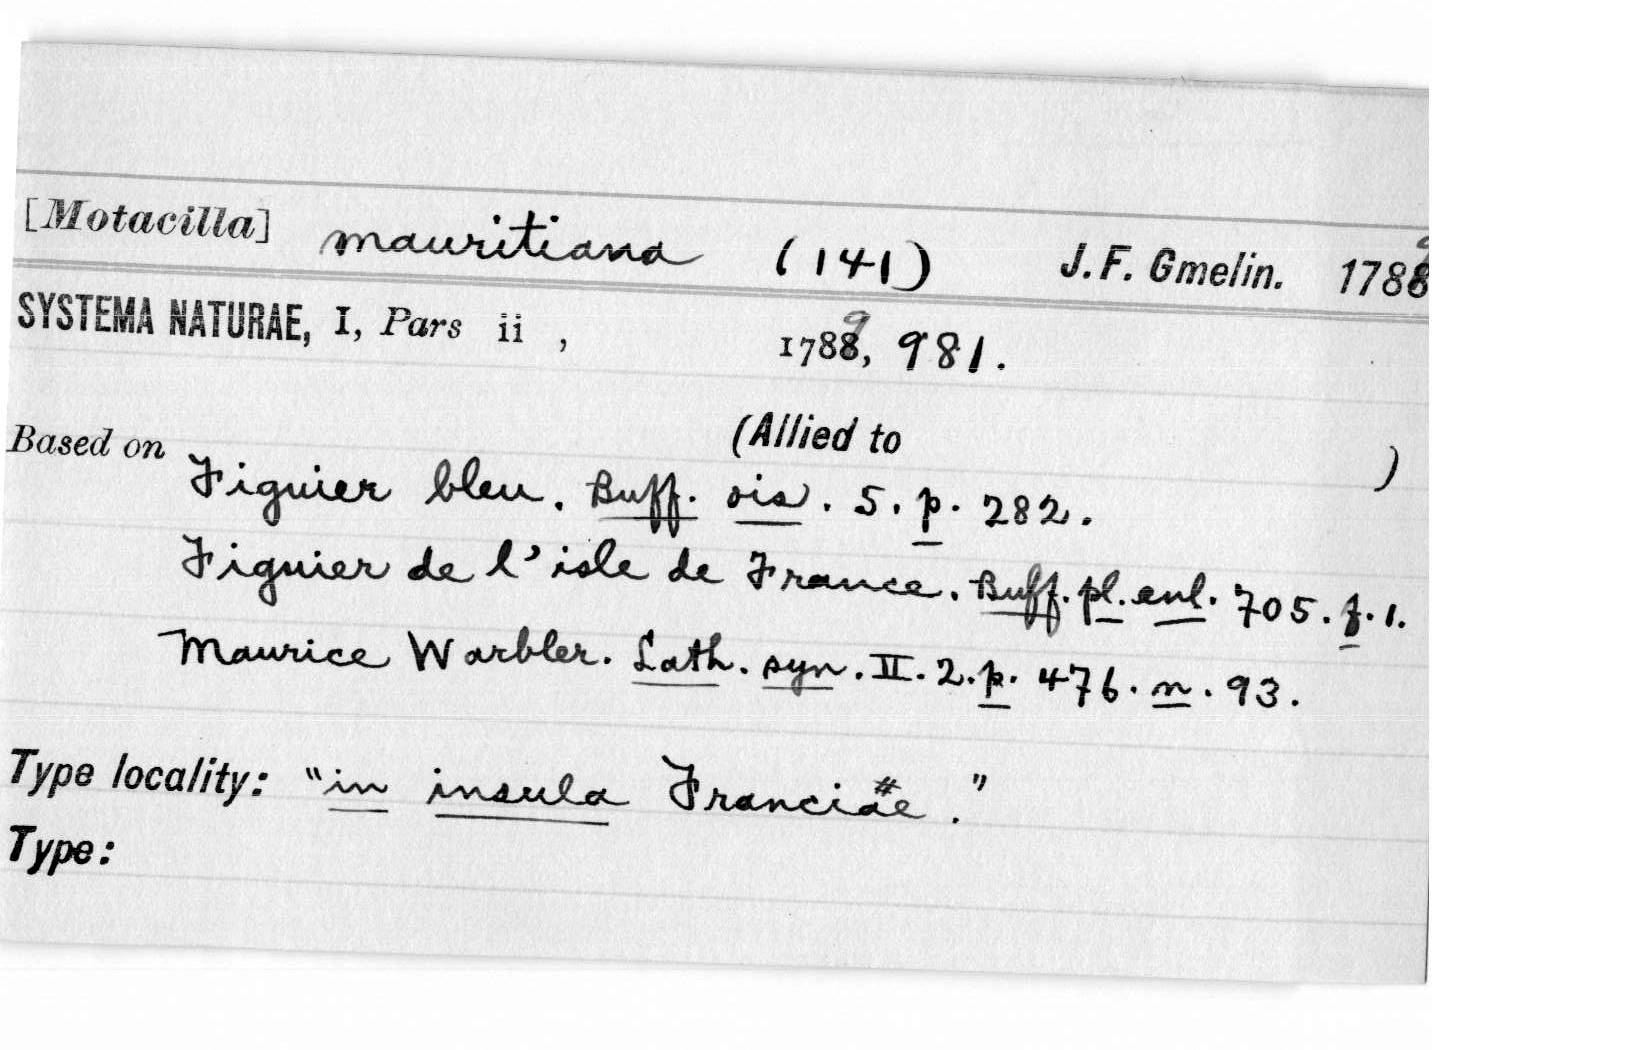 [Motacilla] mauritiana (141) J. F. Gmelin. 1789
SYSTEMA NATURAE, I, Pars ii , 1789, 981.
(Allied to )
Based on
Figuier bleu. Buff. ois. 5. p. 282.
Figuier de l'isle de France. Buff. pl. enl. 705. f. 1.
Maurice Warbler. Lath. syn. II. 2. p. 476. n. 93.
Type locality: "in insula Franciae."
Type: